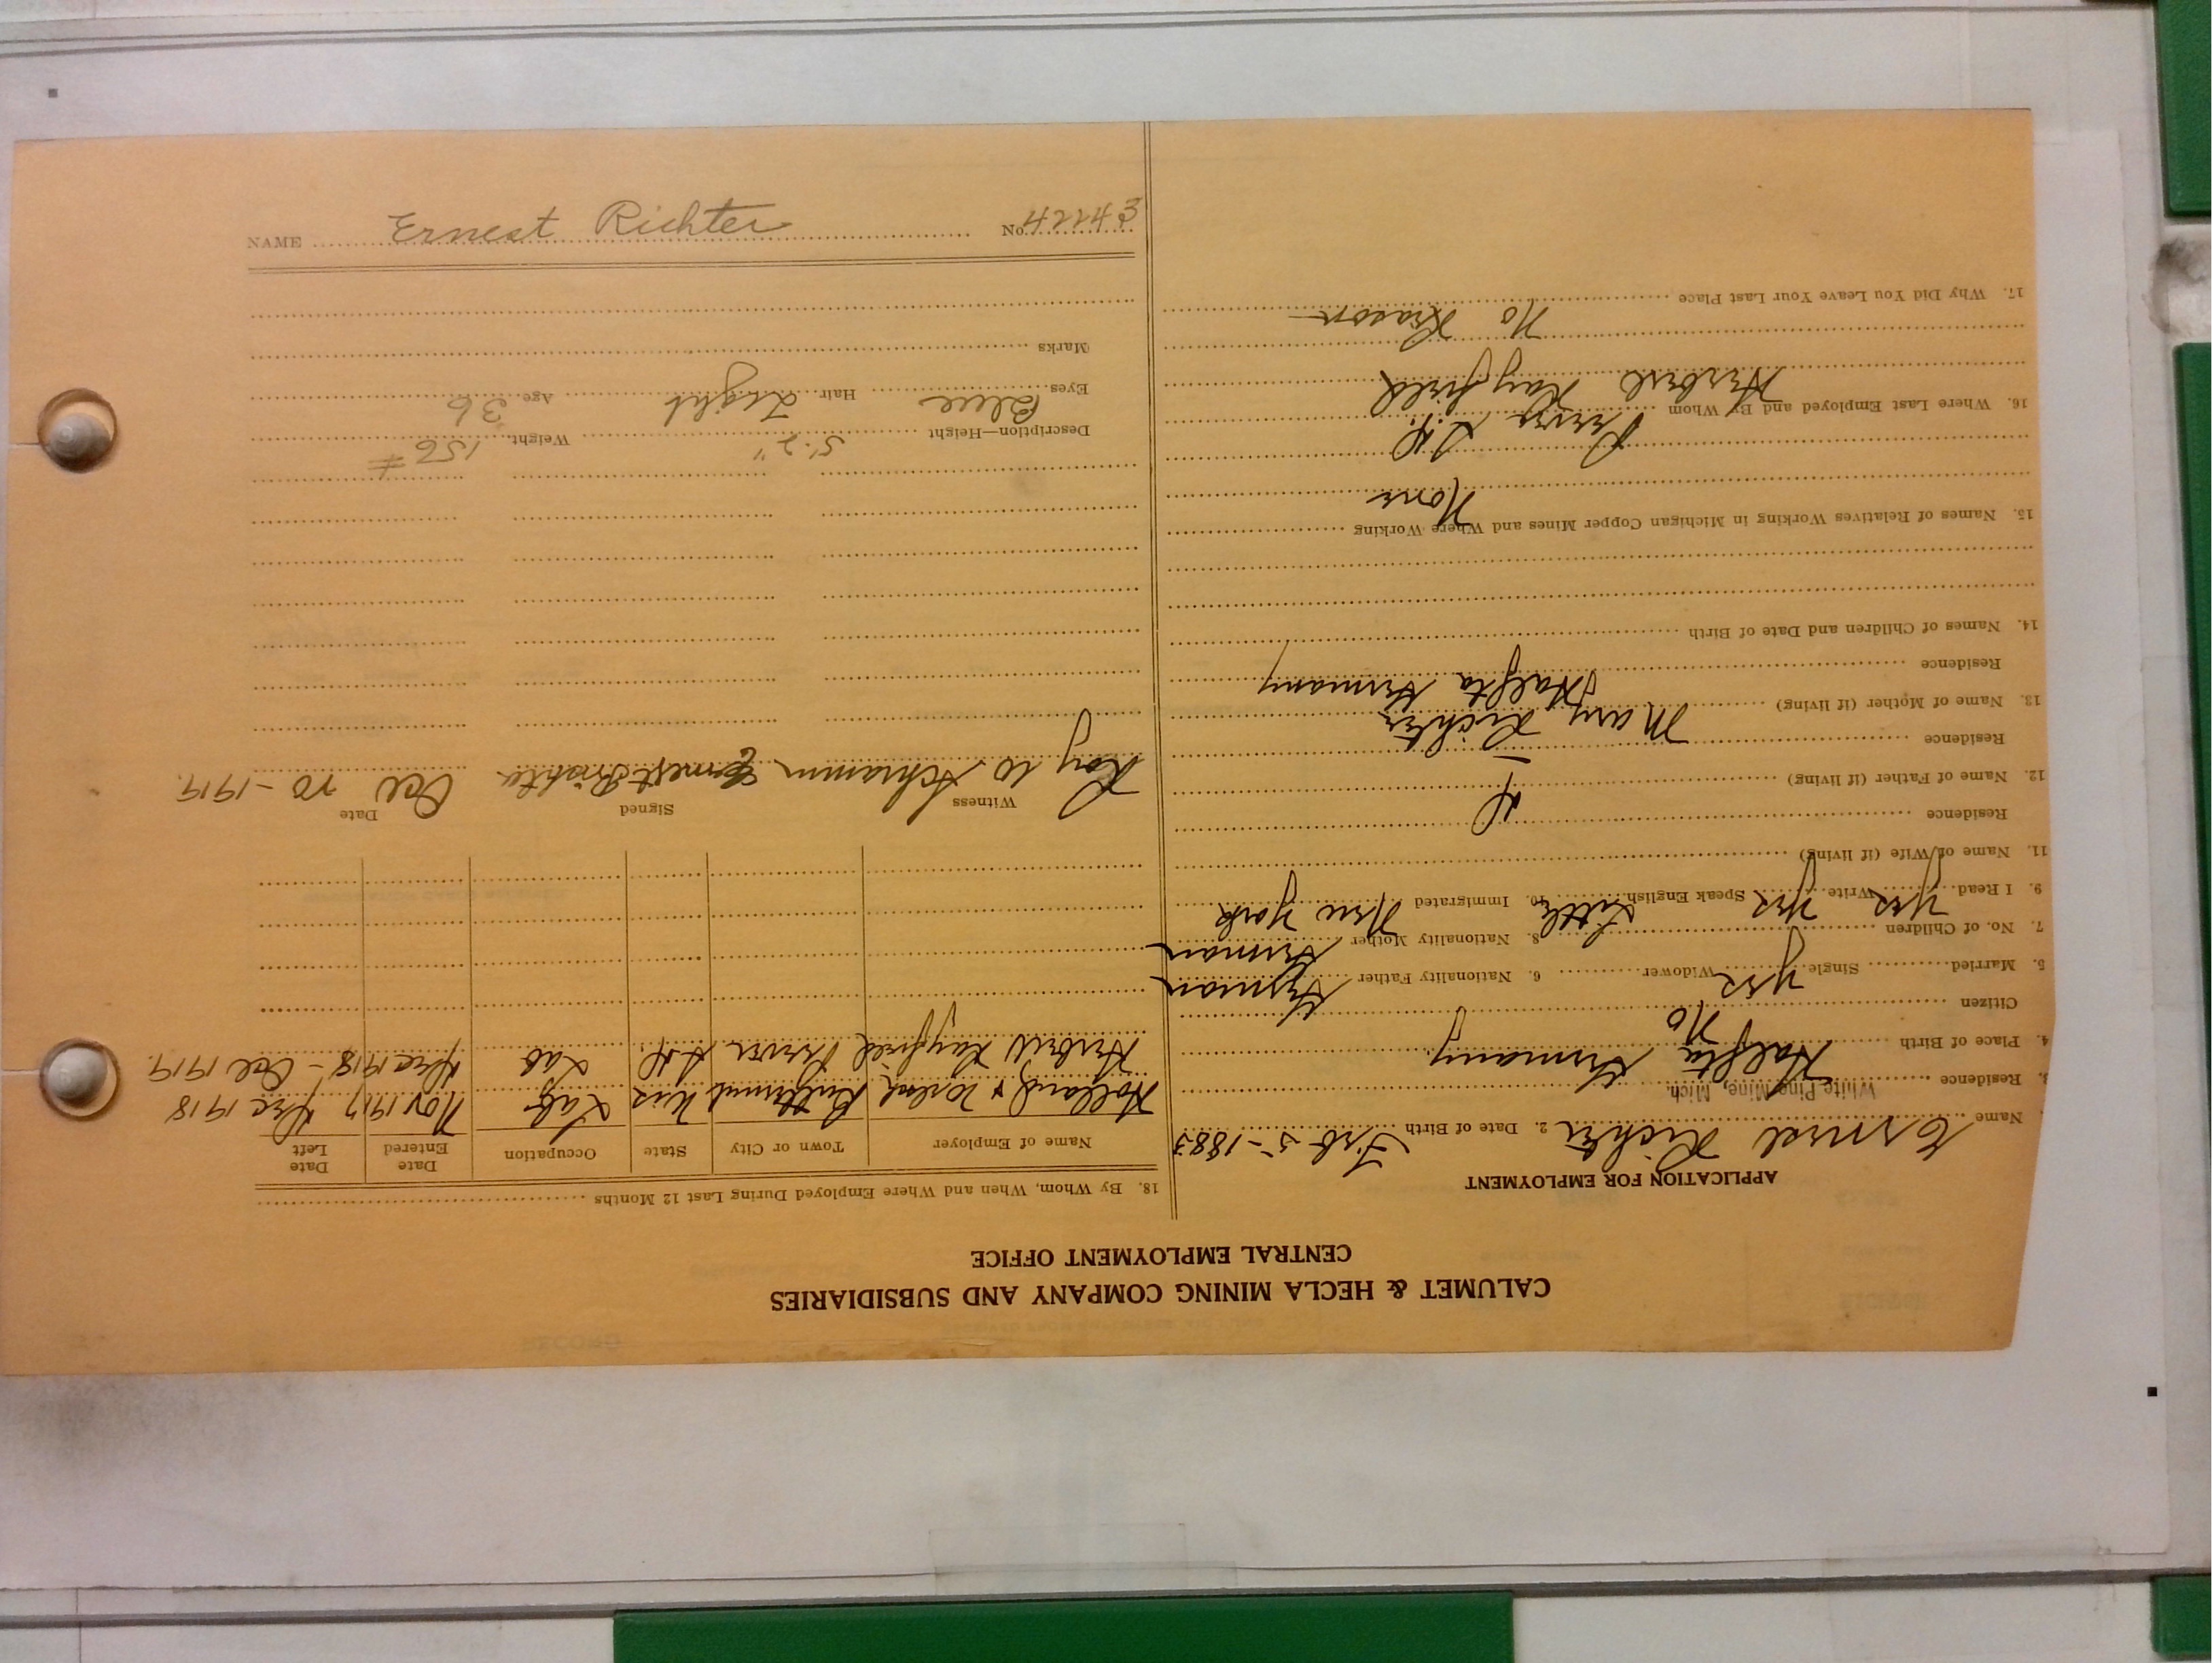 CALUMET & HECLA MINING COMPANY AND SUBSIDIARIES
CENTRAL EMPLOYMENT OFFICE
APPLICATION FOR EMPLOYMENT
Name Ernest Richter 2. Date of Birth Feb 5-1883
3. Residence White Pine Mine, Mich.
4. Place of Birth Germany
Citizen No
5. Married Single yes Widower 6. Nationality Father German
7. No. of Children 8. Nationality Mother German
9. I Read yes Write yes Speak English Little 10. Immigrated New York
11. Name of Wife (if living)
Residence
12. Name of Father (if living)
Residence
13. Name of Mother (if living) Mary Richter
Residence Germany
14. Names of Children and Date of Birth
15. Names of Relatives Working in Michigan Copper Mines and Where Working
None
16. Where Last Employed and By Whom
17. Why Did You Leave Your Last Place
No Reason
18. By Whom, When and Where Employed During Last 12 Months
Name of Employer Town or City State Occupation Date Entered Date Left
Wis Lab Nov 1917 Dec 1918
Lab Dec 1918 - Oct 1919
Witness Signed Date
Roy W Schramm Ernest Richter Oct 20-1919
Description—Height 5'2" Weight 156#
Eyes Blue Hair Light Age 36
Marks
NAME Ernest Richter No. 42243